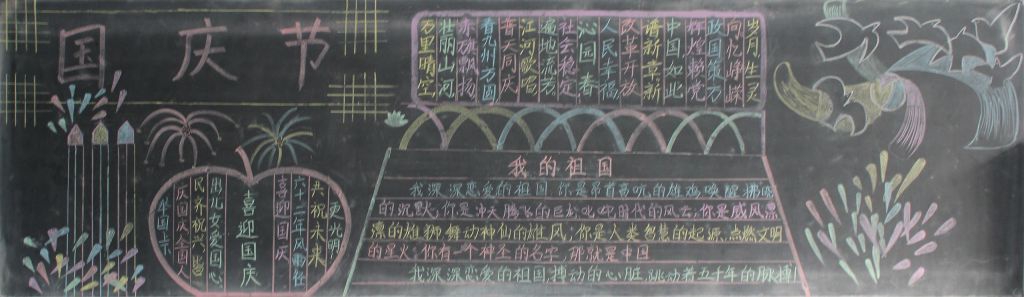 国庆节
万里晴空
壮丽山河
赤旗飘扬
看九州方圆
普天同庆
江河歌唱
社会稳定
沁园春
人民幸福
改革开放
谱新章新
中国如此
辉煌赖党
政国策万
忆峥嵘
岁月生灵
喜迎国庆
更光明
共祝未来
六十二年风雨径
喜迎国庆
儿女爱国心
民齐祝六
庆国庆全国人
我的祖国
我深深恋爱的祖国,你是昂首高吭的雄鸡唤醒拂晓
的沉默;你是冲天腾飞的巨龙叱咤时代的风云;你是威风凛
凛的雄狮舞动神州的雄风;你是人类智慧的起源,点燃文明
的星火;你有一个神圣的名字,那就是中国
我深深恋爱的祖国,搏动的心脏,跳动着五千年的脉搏!